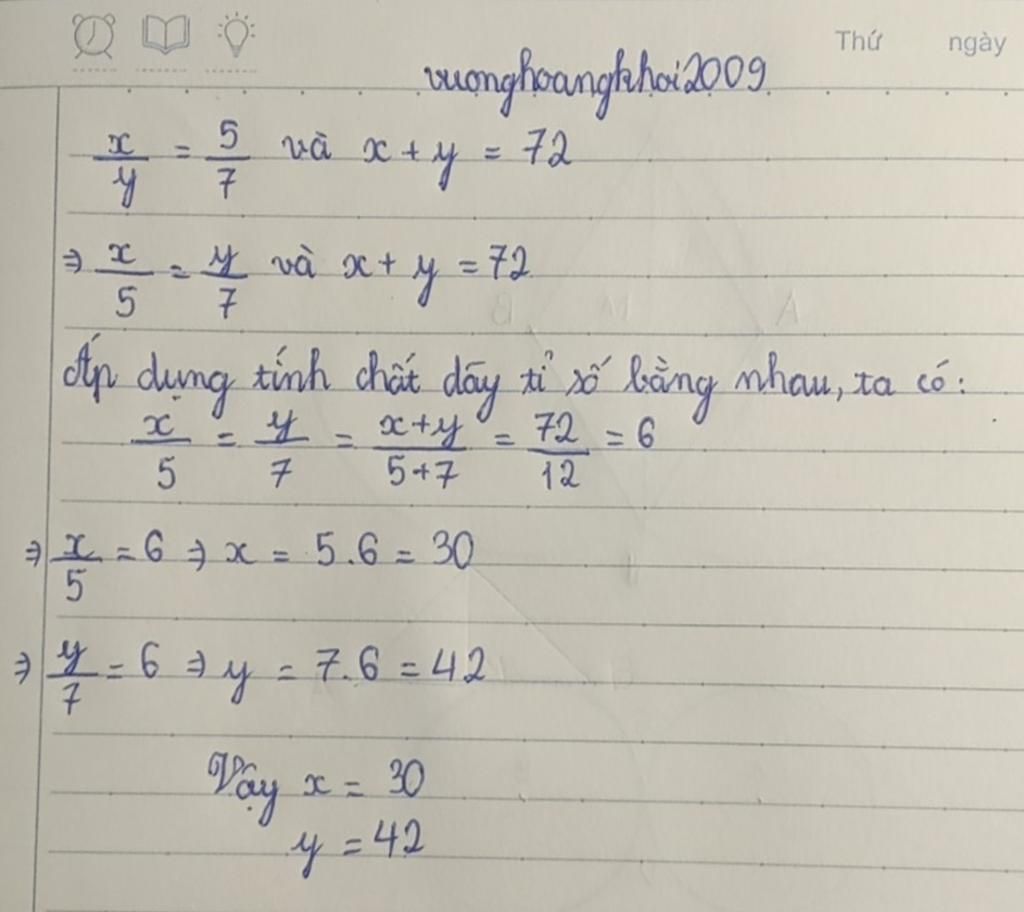 Thứ ngày
vuonghoangkhoi2009
x/y = 5/7 và x + y = 72
⇒ x/5 = y/7 và x + y = 72
Áp dụng tính chất dãy tỉ số bằng nhau, ta có:
x/5 = y/7 = x+y/5+7 = 72/12 = 6
⇒ x/5 = 6 ⇒ x = 5.6 = 30
⇒ y/7 = 6 ⇒ y = 7.6 = 42
Vậy x = 30
y = 42